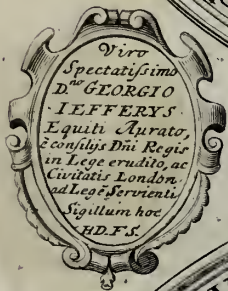 Viro
Spectatiſsimo
D.no GEORGIO
IEFFERYS
Equiti Aurato,
è conſilijs Dñi Regis
in Lege erudito, ac
Civitatis London.
ad Legē Servienti
Sigillum hoc
HD.F.S.